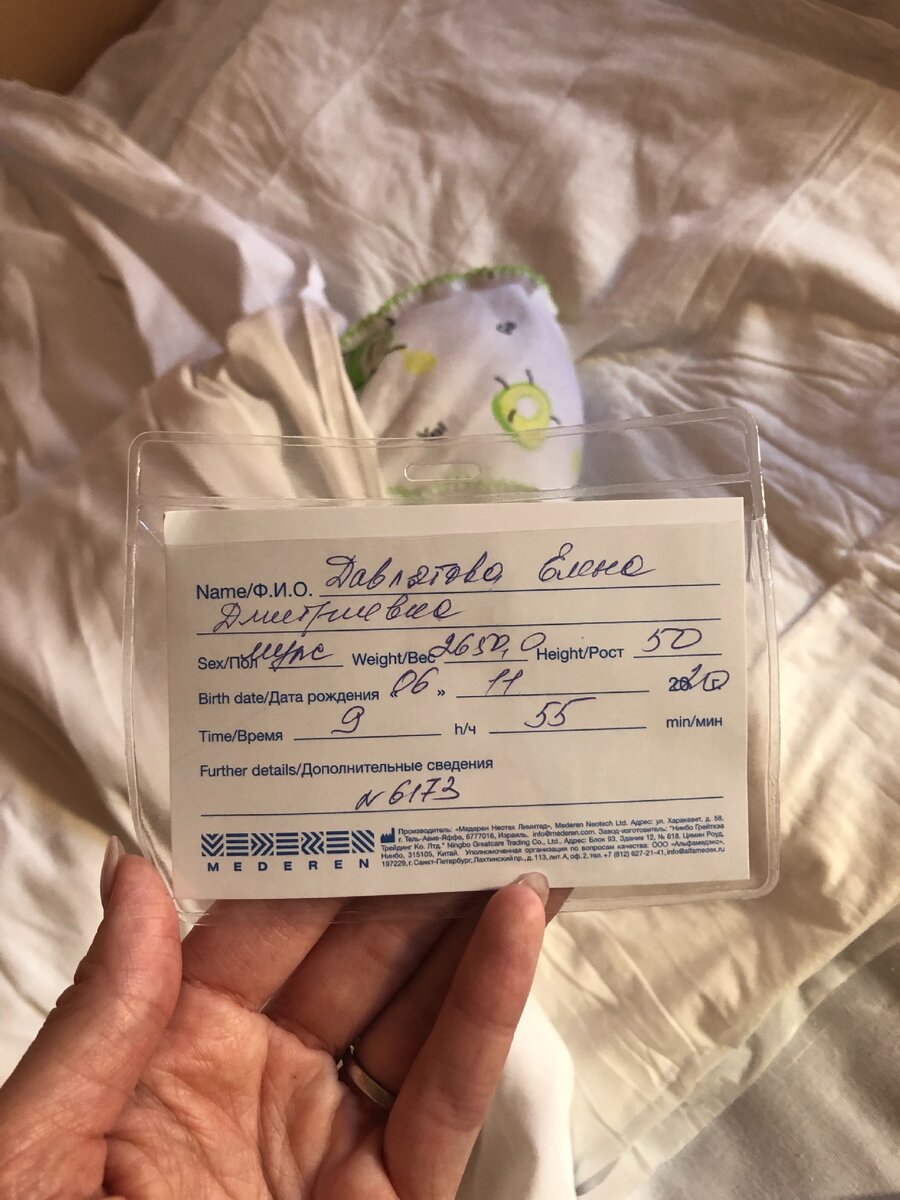 Name/Ф.И.О. Давлятова Елена
Дмитриевна
Sex/Пол муж Weight/Вес 2650,0 Height/Рост 50
Birth date/Дата рождения "06" 11 2020 г.
Time/Время 9 h/ч 55 min/мин
Further details/Дополнительные сведения
№6173
MEDEREN
Производитель: «Медерен Неотех Лимитед», Mederen Neotech Ltd. Адрес: ул. Харакевет, д. 58,
г. Тель-Авив-Яффа, 6777016, Израиль. info@mederen.com. Завод-изготовитель: "Нинбо Грейткэа
Трейдинг Ко. Лтд." Ningbo Greatcare Trading Co., Ltd.. Адрес: Блок 03, Здание 12, № 818, Цимин Роуд,
Нинбо, 315105, Китай. Уполномоченная организация по вопросам качества: ООО «Альфамедэкс»,
197229, г. Санкт-Петербург, Лахтинский пр., д. 113, лит. А, оф. 2, тел. +7 (812) 627-21-41, info@alfamedex.ru